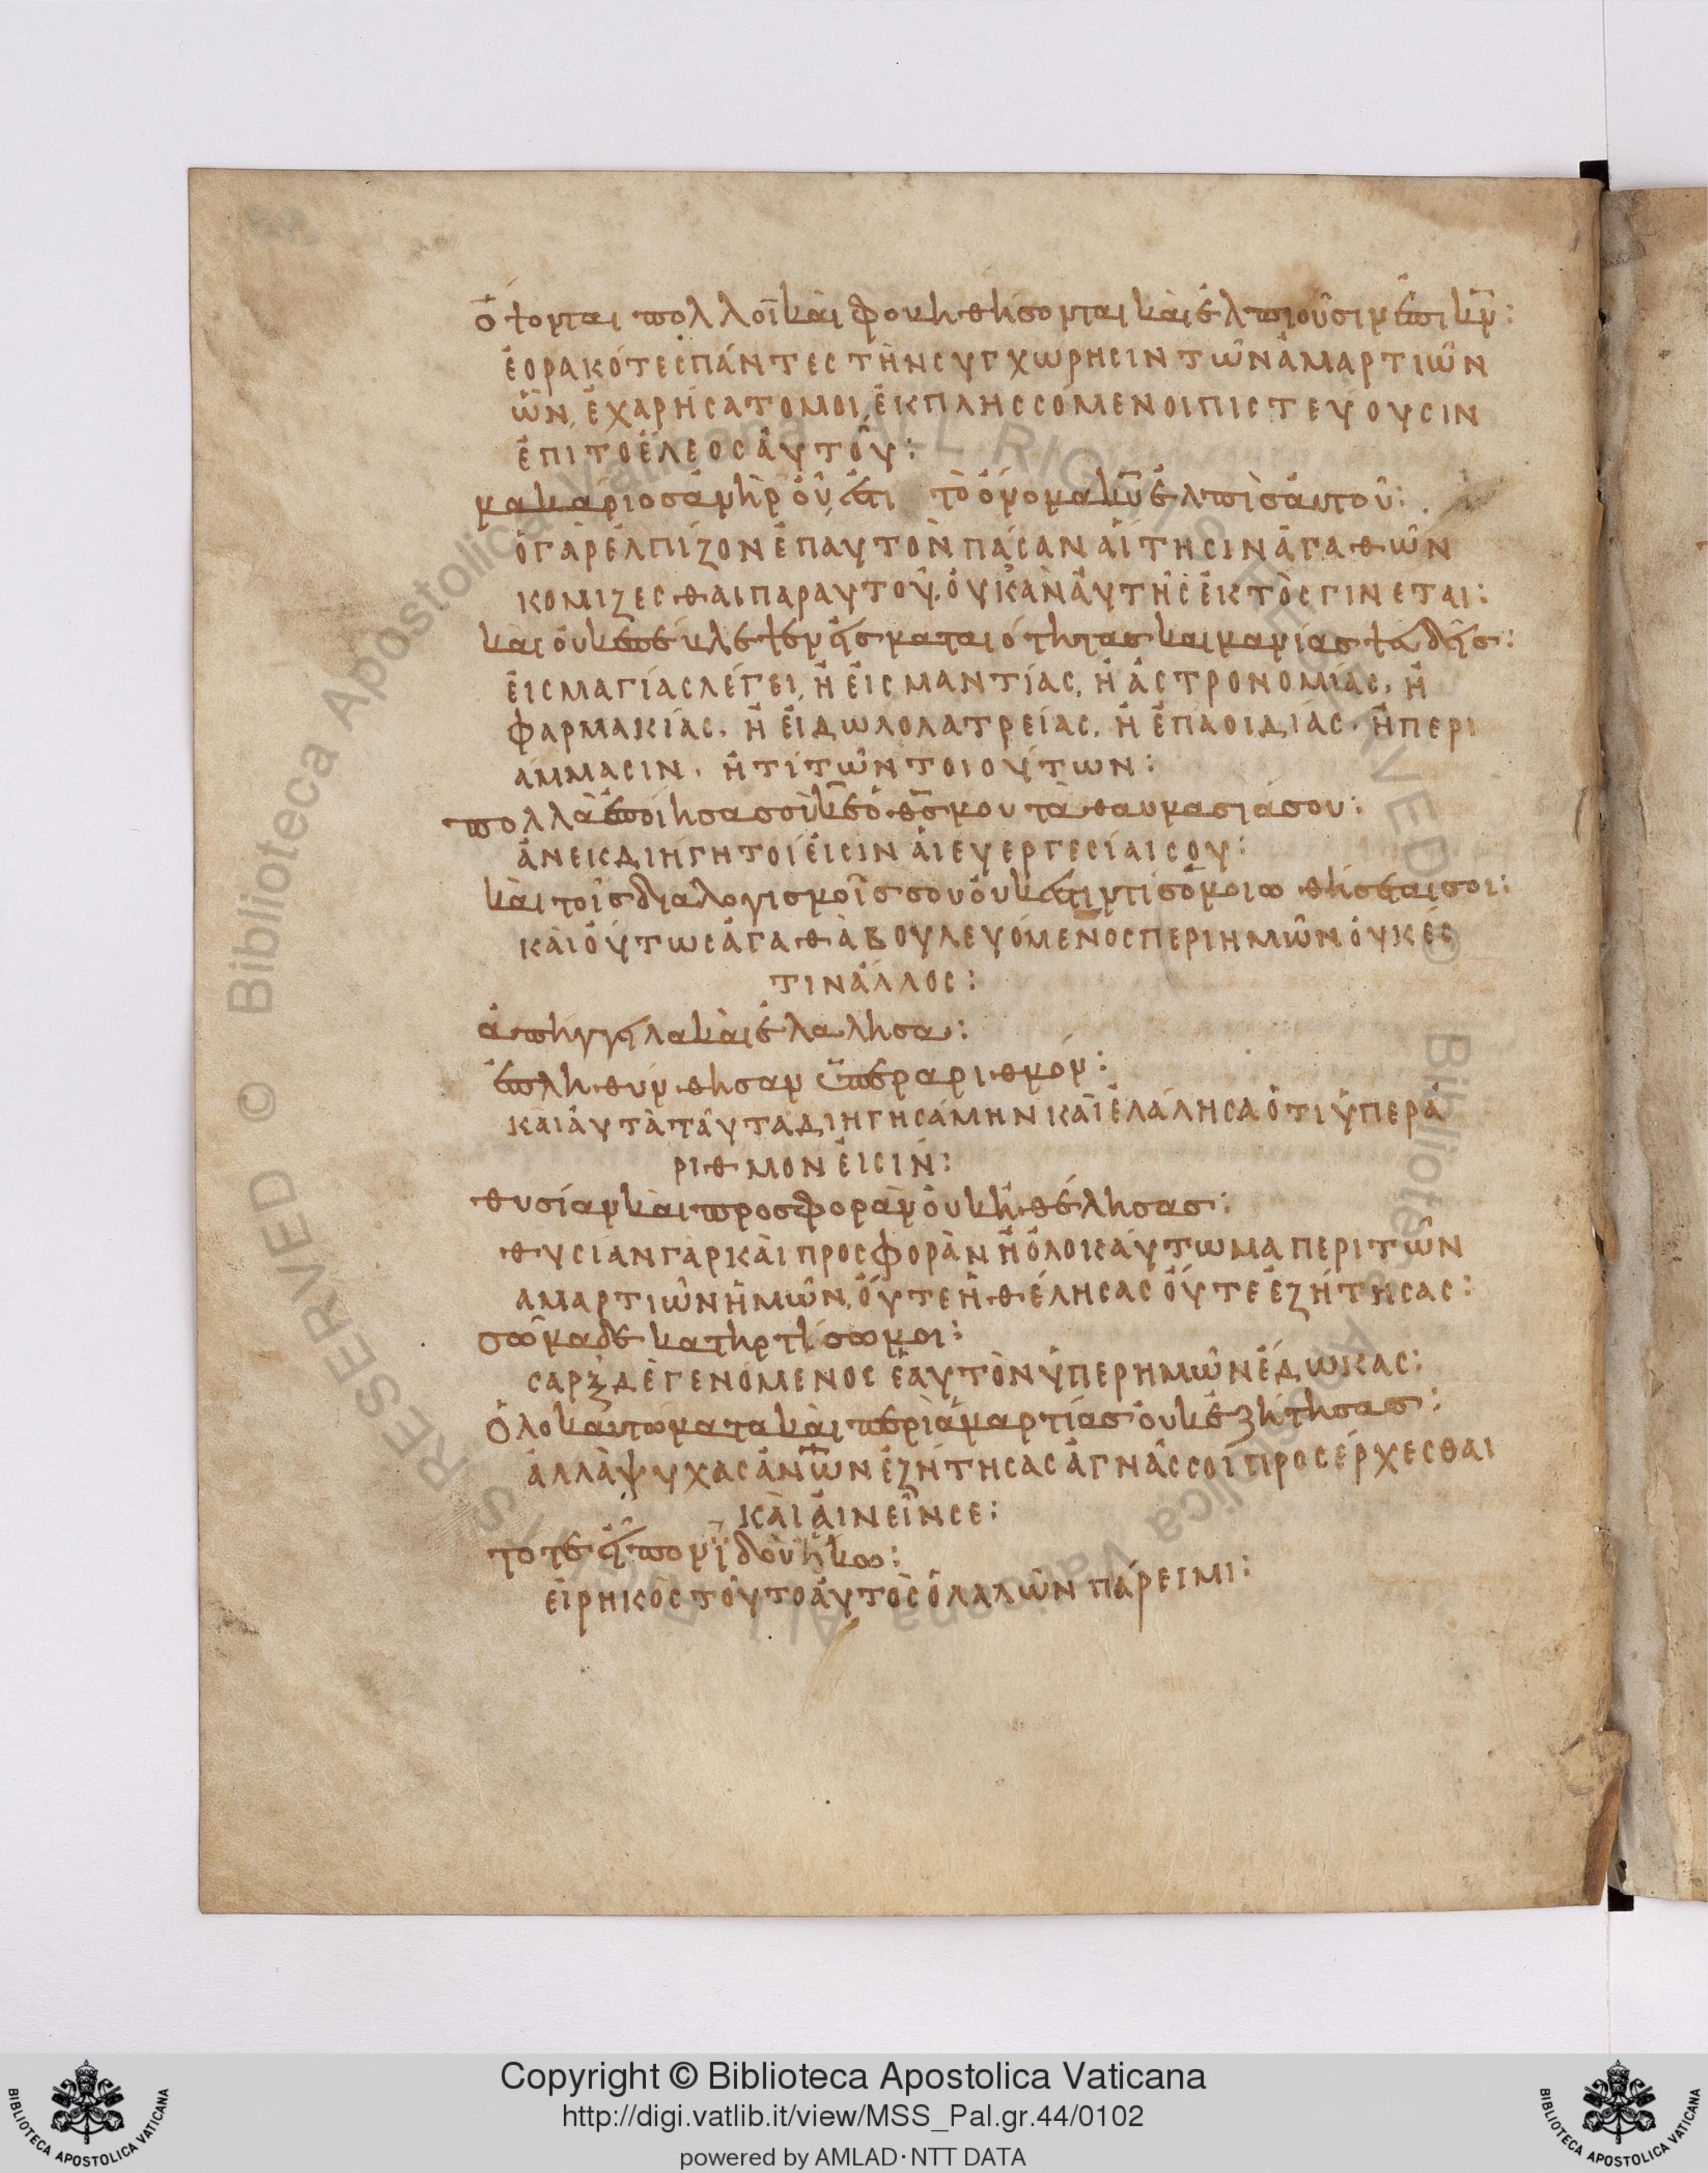 ὄψονται πολλοὶ καὶ φοβηθήσονται καὶ ἐλπιοῦσιν ἐπὶ κν̅:
ἑορακότες πάντες τὴν συγχώρησιν τῶν ἁμαρτιῶν
ὧν, ἐχαρήσατο μοι, ἐκπλησσόμενοι πιστεύουσιν
ἐπι τὸ ἔλεος αὐτοῦ:
μακάριος ἀνὴρ οὗ ἐστι τὸ ὄνομα κυ̅ ἐλπὶς αὐτοῦ:
ὁ γὰρ ἐλπίζον ἐπ αυτὸν πάσαν αἴτησιν ἀγαθῶν
κομιζεσθαι παρ αυτοῦ, οὐκ ἂν αὐτῆς ἐκτὸς γινεται:
καὶ οὐκ ἐπέβλεψεν εἰς ματαιότητας και μανίας ψευδεῖς:
εἰς μαγίας λέγει, ἢ εἰς μαντίας, ἢ ἀστρονομίας, ἢ
φαρμακίας. ἢ εἰδωλολατρείας. ἢ ἐπαοιδιάς. ἢ περι
αμμασιν. ἤ τι τῶν τοιούτων:
πολλὰ ἐποίησας σὺ κε̅ ὁ θς̅ μου τὰ θαυμασιά σου:
ἀνεκδιηγητοί εἰσιν ἁι ευεργεσίαι σου:
καὶ τοῖς διαλογισμοῖς σου οὐκ ἔστιν τίς ὁμοιωθήσεται σοι:
καὶ οὕτως ἀγαθὰ βουλευόμενος περι ημῶν οὐκ ἔς
τιν ἄλλος:
ἀπήγγειλα καὶ ἐλάλησα:
ἐπληθύνθησαν ὑπὲρ αριθμόν:
καὶ αὐτὰ ταῦτα διηγησάμην καὶ ἐλάλησα ὅτι ὑπερ ἀ
ριθμον εἰσίν:
θυσίαν καὶ προσφορὰν οὐκ ἠθέλησας:
θυσιαν γαρ καὶ προσφορὰν ἢ ὁλοκαύτωμα περι τῶν
αμαρτιῶν ἡμῶν, οὔτε ἠθέλησας οὔτε ἐζήτησας:
σῶμα δὲ κατηρτίσω μοι:
σαρξ δὲ γενόμενος ἑαυτὸν ὑπερ ημῶν ἔδωκας:
Ὁλοκαυτώματα καὶ περὶ ἁμαρτίας οὐκ ἐζήτησας:
ἀλλὰ ψυχας ἀνω̅ν ἐζήτησας ἁγνάς σοί προσέρχεσθαι
καὶ αἰνεῖν σε:
τότε εἶπον ἰδοὺ ἥκω:
εἰρηκὸς τοῦτο αὐτὸς ὁ λαλὼν πάρειμι:
Copyright © Biblioteca Apostolica Vaticana
http://digi.vatlib.it/view/MSS_Pal.gr.44/0102
powered by AMLAD·NTT DATA